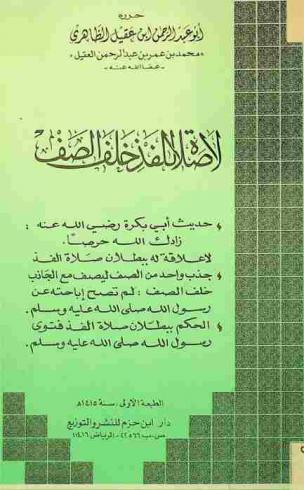 حرره
أبو عبد الرحمن ابن عقيل الظاهري
«محمد بن عمر بن عبد الرحمن العقيل»
- عفا الله عنه -
لا صلاة لفذ خلف الصف
حديث أبي بكرة رضي الله عنه :
زادك الله حرصًا .
لا علاقة له ببطلان صلاة الفذ
جذب واحد من الصف ليصف مع الجانب
خلف الصف : لم تصح إباحته عن
رسول الله صلى الله عليه وسلم .
الحكم ببطلان صلاة الفذ فتوى
رسول الله صلى الله عليه وسلم .
الطبعة الأولى / سنة ١٤١٥هـ
دار ابن حزم للنشر والتوزيع
ص.ب ٤٢٥٦٦ - الرياض ١١٤١٦